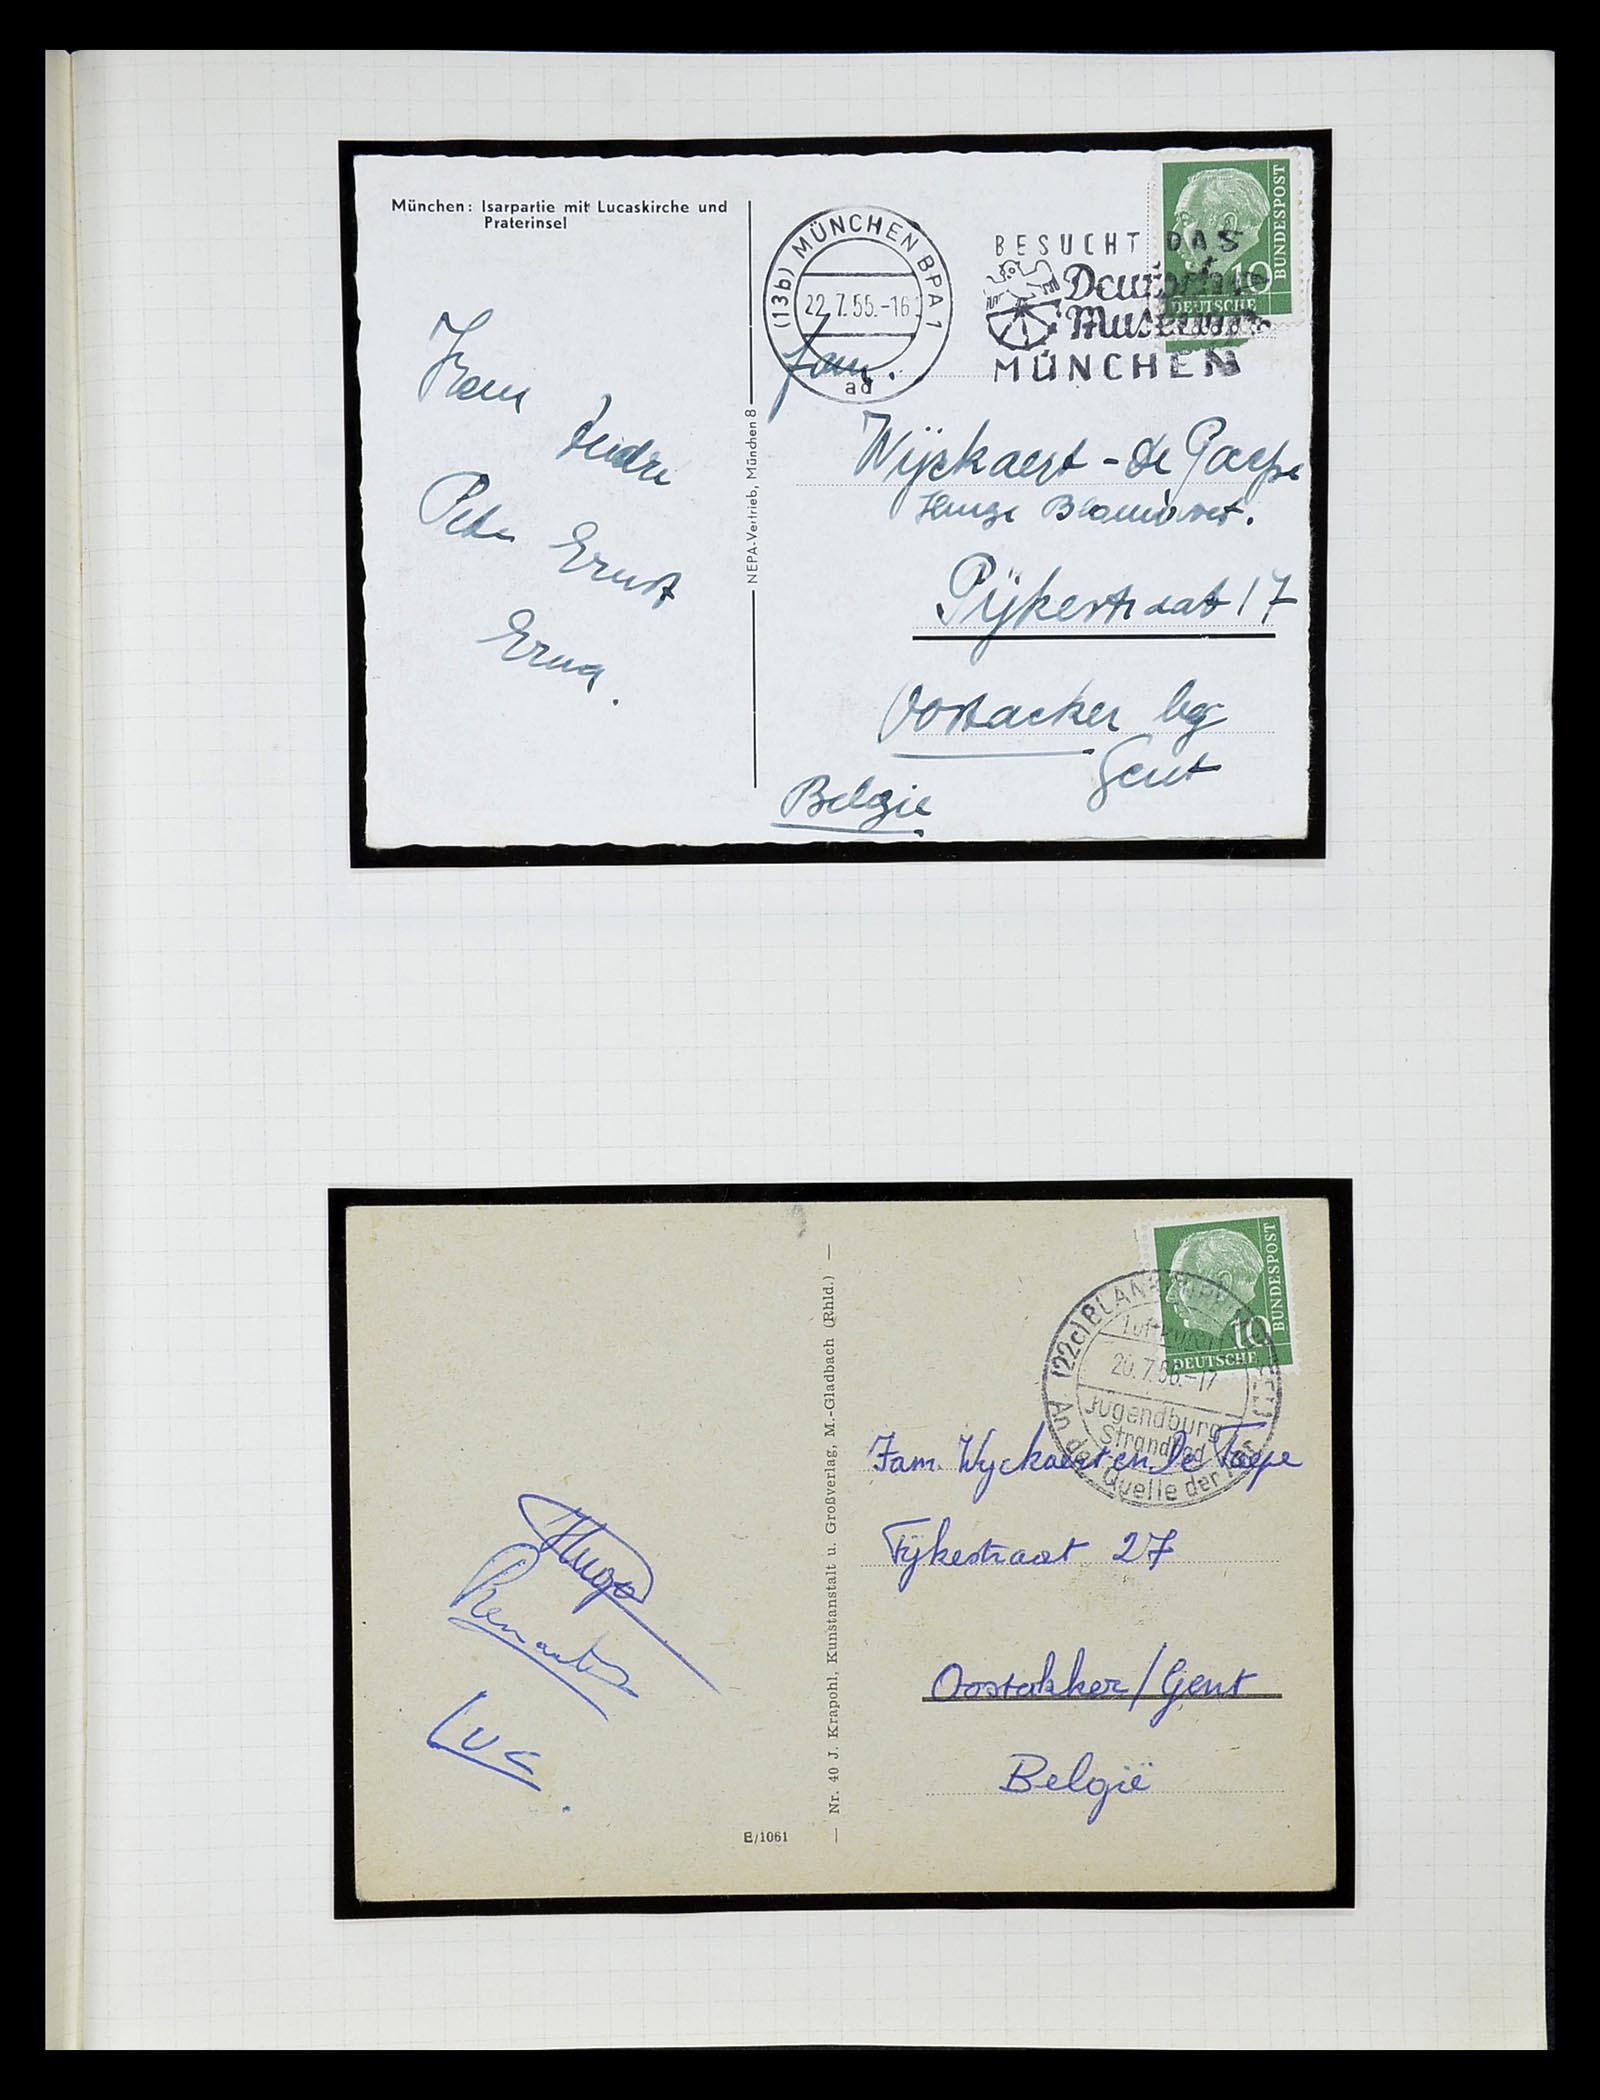 München: Isarpartie mit Lucaskirche und
Praterinsel
(13b) MÜNCHEN BPA 1
22.7.55.-16
ad
BESUCHT DAS
Deutsche
Museum
MÜNCHEN
10
DEUTSCHE
BUNDESPOST
NEPA-Vertrieb, München 8
Peter Ernst
Erna.
Fam.
Wijckaert - de
Pijkestraat 17
Oostacker bg
Gent
België
10
DEUTSCHE
BUNDESPOST
(22c) BLANKENHEIM
Luftkurort
20.7.56.-17
Jugendburg
Strandbad
An der Quelle der Ahr
Nr. 40 J. Krapohl, Kunstanstalt u. Großverlag, M.-Gladbach (Rhld.)
Fam. Wyckaert en De Taeye
Tijkestraat 27
Oostakker/Gent
België
Hugo
Luc.
E/1061